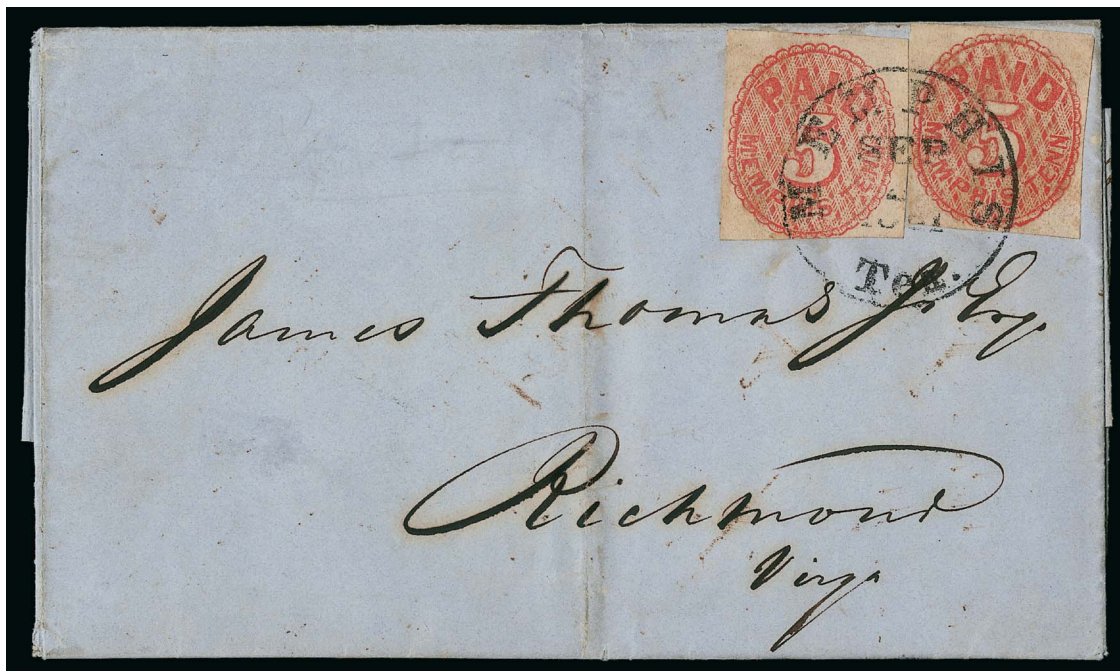 PAID
5
MEMPHIS TENN
PAID
5
MEMPHIS TENN
MEMPHIS
SEP
Ten.
James Thomas Jr Esq.
Richmond
Virga